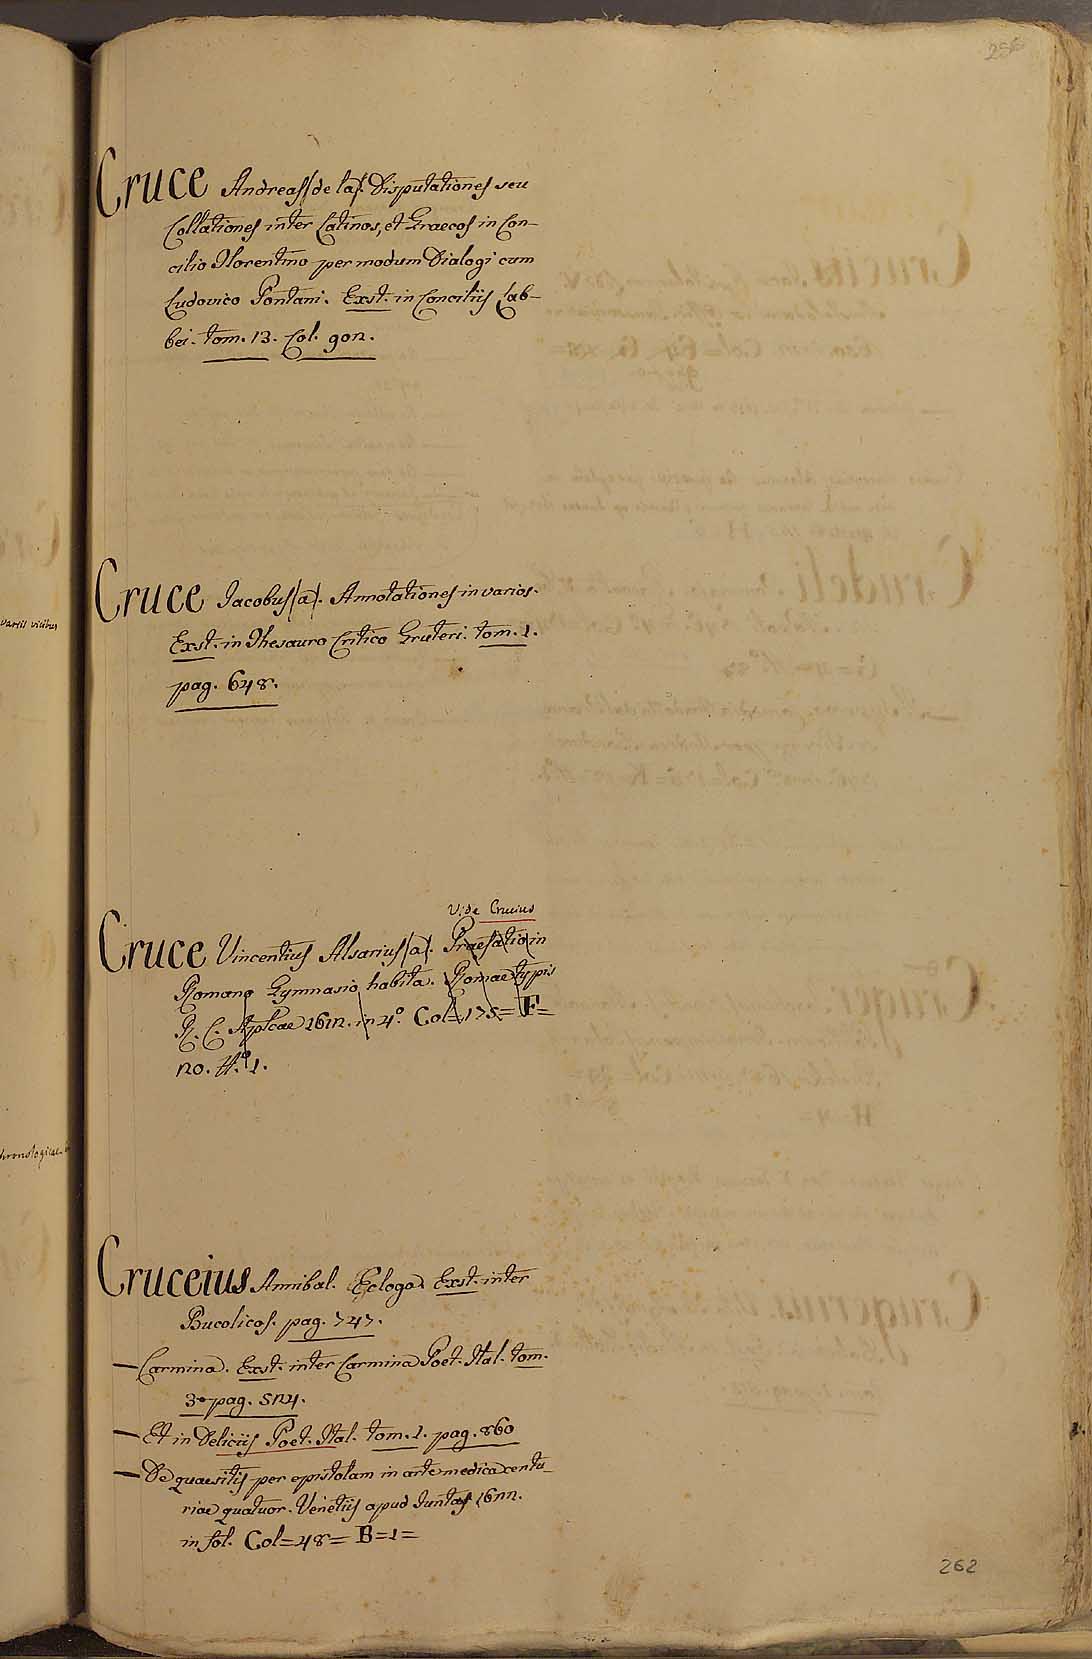 256
Cruce Andreas (de la). Disputationes seu
Collationes inter Latinos, et Graecos in Con-
cilio Florentino per modum Dialogi cum
Ludovico Pontani. Exst. in Conciliis Lab-
bei. tom. 13. Col. 902.
Cruce Jacobus (a). Annotationes in varios.
Exst. in Thesauro Critico Gruteri. tom. 1.
pag. 648.
variis vicibus
Vide Crucius
Cruce Vincentius Alsarius (a). Praefatio in
Romano Gymnasio habita. Romae typis
R. C. Aplcae 1612. in 4º. Col=175= F=
20. Nº 1.
Chronologicae
Cruceius Annibal. Ecloga. Exst. inter
Bucolicos. pag. 747.
— Carmina. Exst. inter Carmina Poet. Ital. tom.
3º pag. 524.
— Et in Deliciis Poet. Ital. tom. 1. pag. 860
— De quaesitis per epistolam in arte medica centu-
riae quatuor. Venetiis apud Juntas 1622.
in fol. Col=48= B=1=
262